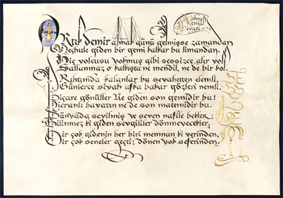 Artık demir almak günü gelmişse zamandan
Meçhule giden bir gemi kalkar bu limandan.
Hiç yolcusu yokmuş gibi sessizce alır yol;
Sallanmaz o kalkışta ne mendil, ne de bir kol.
Rıhtımda kalanlar bu seyahatten elemli,
Günlerce siyah ufka bakar gözleri nemli.
Biçare gönüller! Ne giden son gemidir bu!
Hicranlı hayatın ne de son matemidir bu.
Dünyada sevilmiş ve seven nafile bekler;
Bilmez ki giden sevgililer dönmeyecekler.
Bir çok gidenin her biri memnun ki yerinden,
Bir çok seneler geçti; dönen yok seferinden.